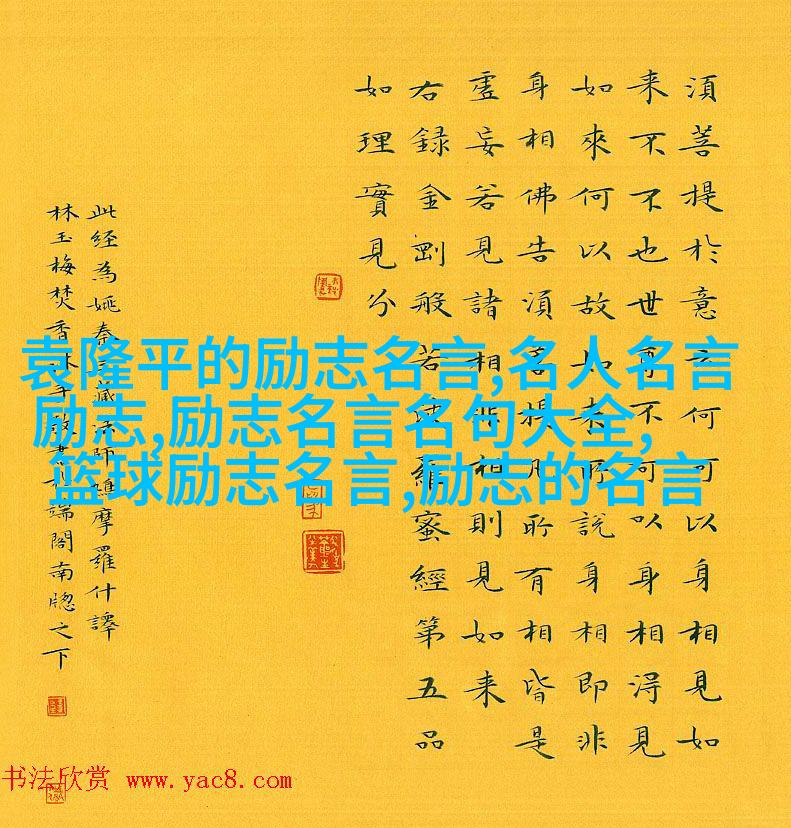 須菩提於意云何可以身相見如
来不不也世尊不可以身相得見
如來何以故如来所說身相即非
身相佛告須菩提凡所有相皆是
虛妄若見諸相非相則見如来
右録金剛般若波羅蜜經第五品
如理實見分
此経為姚秦三藏法師鳩摩羅什譯
林玉梅焚香沐手敬書端閣南牕之下
袁隆平的励志名言,名人名言
励志,励志名言名句大全,
篮球励志名言,励志的名言
书法欣赏 www.yac8.com